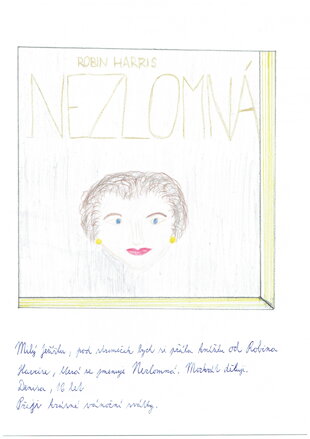 ROBIN HARRIS
NEZLOMNÁ
Milý ježíšku, pod stromeček bych si přála knížku od Robina
Harrise, která se jmenuje Nezlomná. Mockrát děkuji.
Denisa, 16 let
Přeji krásné vánoční svátky.